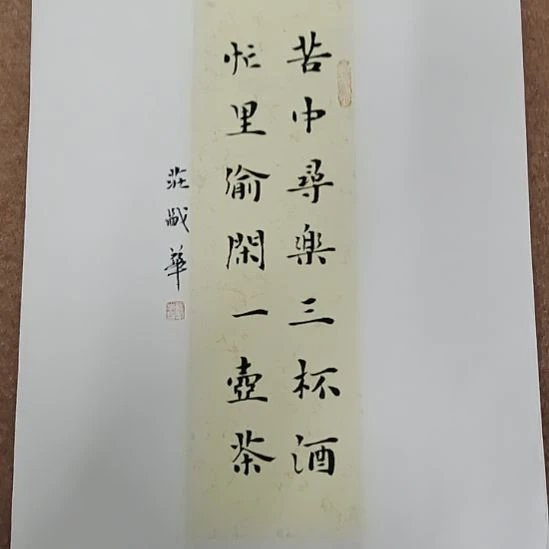 苦中尋楽三杯酒
忙里偷閑一壺茶
莊戱華